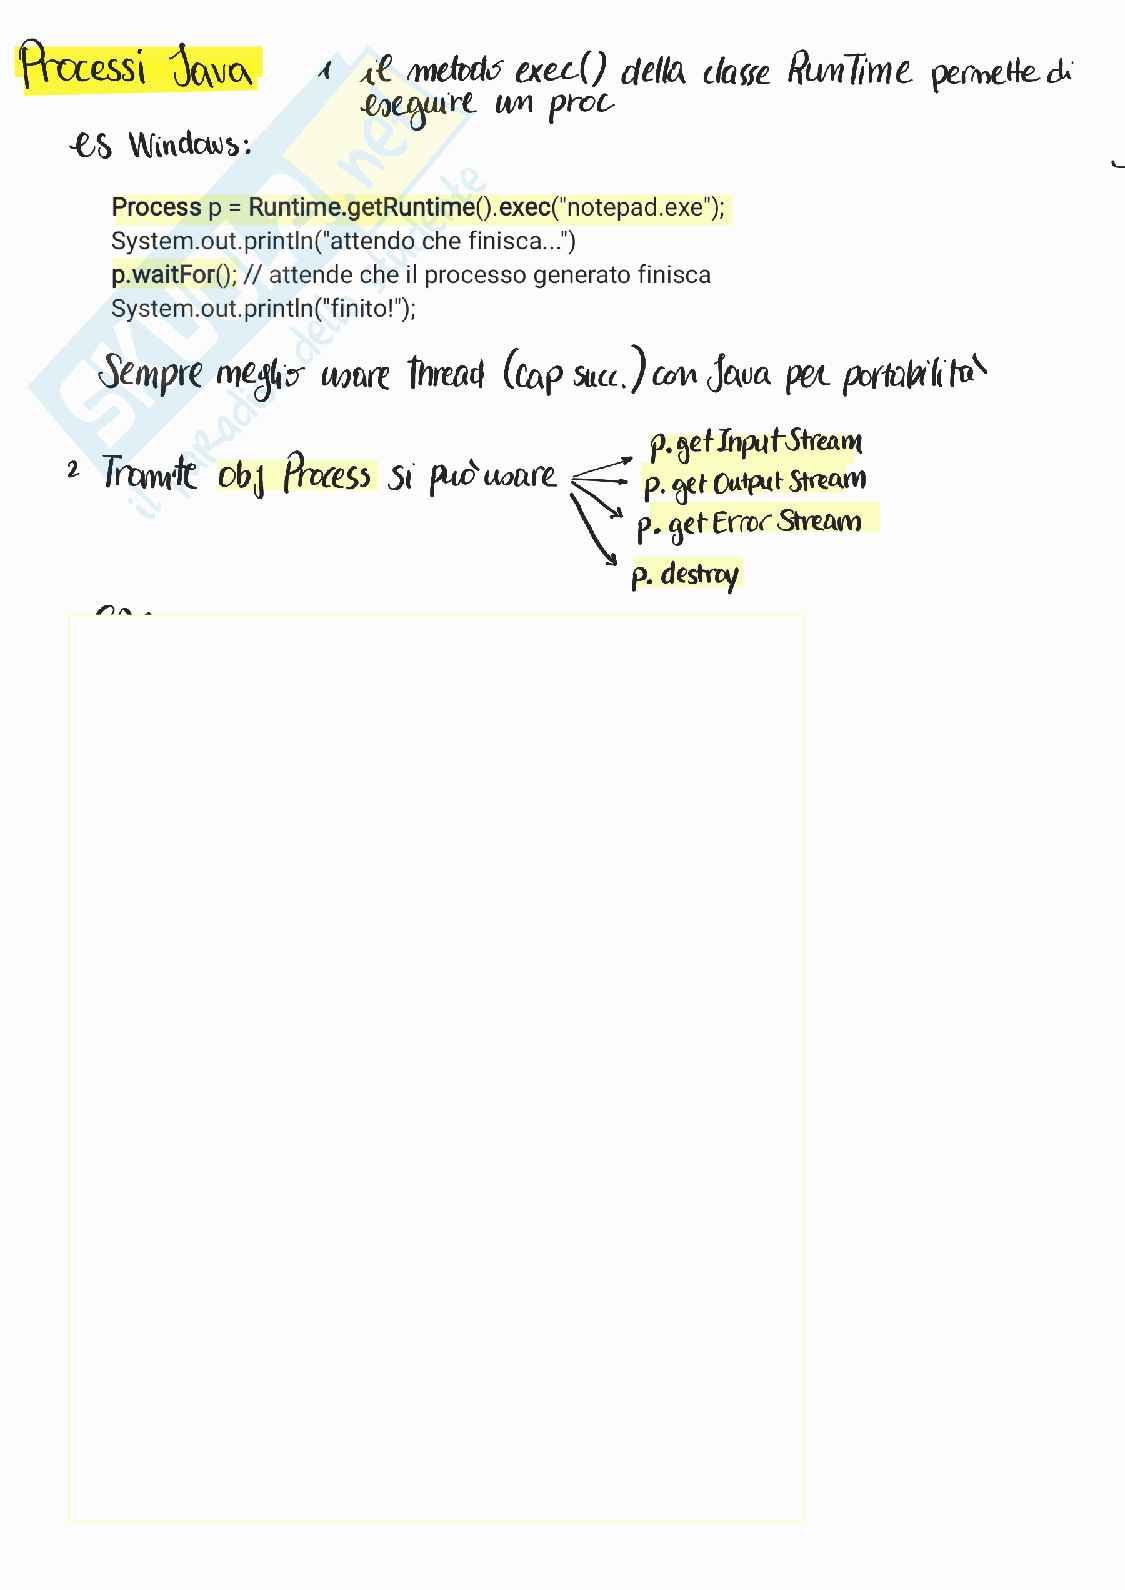 Processi Java 1 il metodo exec() della classe RunTime permette di
eseguire un proc
es Windows:
Process p = Runtime.getRuntime().exec("notepad.exe");
System.out.println("attendo che finisca...")
p.waitFor(); // attende che il processo generato finisca
System.out.println("finito!");
Sempre meglio usare thread (cap succ.) con Java per portabilità
2 Tramite obj Process si può usare
p.getInputStream
p.getOutputStream
p.getErrorStream
p.destroy
SKUOLA.net
il paradiso dello studente